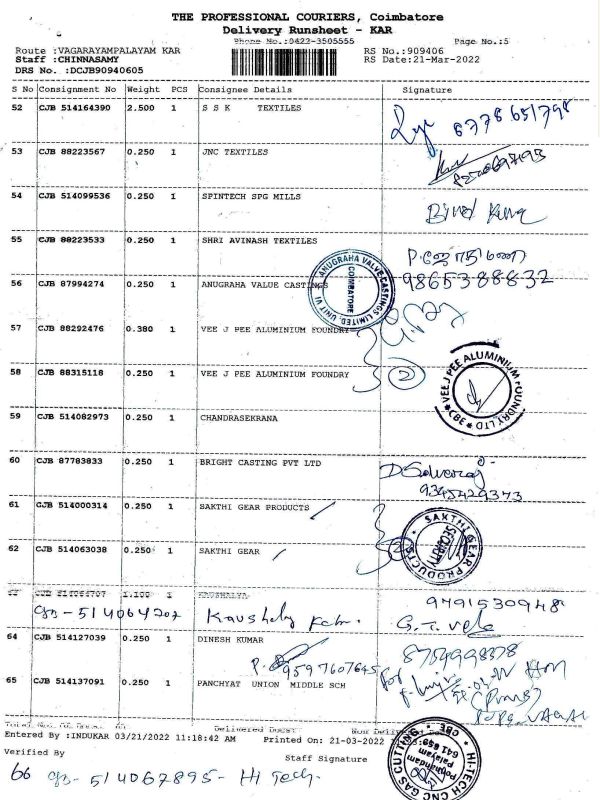 THE PROFESSIONAL COURIERS, Coimbatore
Delivery Runsheet - KAR
Phone No.:0422-3505555 Page No.:5
Route :VAGARAYAMPALAYAM KAR RS No.:909406
Staff :CHINNASAMY RS Date:21-Mar-2022
DRS No. :DCJB90940605
S No Consignment No Weight PCS Consignee Details Signature
52 CJB 514164390 2.500 1 S S K TEXTILES
53 CJB 88223567 0.250 1 JNC TEXTILES
54 CJB 514099536 0.250 1 SPINTECH SPG MILLS
55 CJB 88223533 0.250 1 SHRI AVINASH TEXTILES
9865388832
56 CJB 87994274 0.250 1 ANUGRAHA VALUE CASTINGS
ANUGRAHA VALVE CASTINGS LIMITED, UNIT VI
COIMBATORE
57 CJB 88292476 0.380 1 VEE J PEE ALUMINIUM FOUNDRY
58 CJB 88315118 0.250 1 VEE J PEE ALUMINIUM FOUNDRY
2
VEE J PEE ALUMINIUM FOUNDRY LTD
CBE
59 CJB 514082973 0.250 1 CHANDRASEKRANA
60 CJB 87783833 0.250 1 BRIGHT CASTING PVT LTD
9345429373
61 CJB 514000314 0.250 1 SAKTHI GEAR PRODUCTS
62 CJB 514063038 0.250 1 SAKTHI GEAR
SAKTHI GEAR PRODUCTS
SECURITY
CJB 514064707 1.100 1 KAUSHALYA
9791530948
64 CJB 514127039 0.250 1 DINESH KUMAR
9597607645
65 CJB 514137091 0.250 1 PANCHYAT UNION MIDDLE SCH
Delivered Docs:
Entered By :INDUKAR 03/21/2022 11:18:42 AM Printed On: 21-03-2022
Verified By Staff Signature
66 CJB - 514067895 - Hi Tech.
HI-TECH CNC GAS CUTTING
CBE
641 659